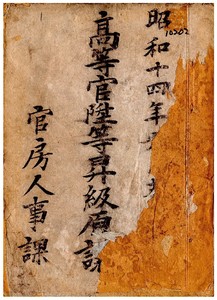 昭和十四年
高等官陞等昇級原議
官房人事課
10502